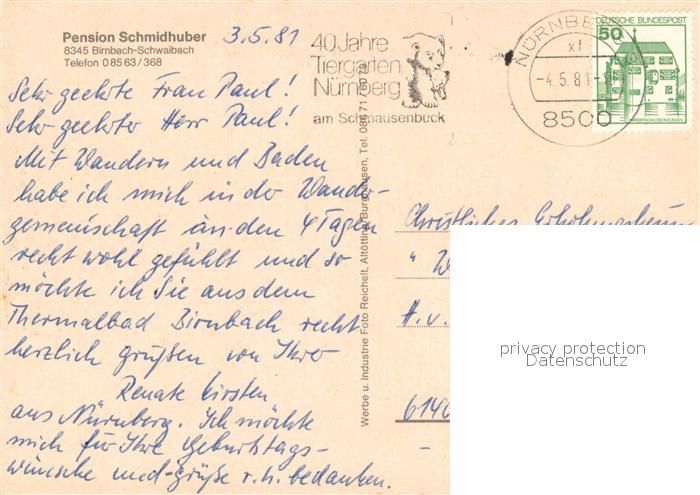 Pension Schmidhuber
8345 Birnbach-Schwaibach
Telefon 0 85 63 / 368
3.5.81
40 Jahre
Tiergarten
Nürnberg
am Schmausenbuck
NÜRNBERG
xf
-4.5.81-
8500
DEUTSCHE BUNDESPOST
50
WASSERSCHLOSS INZLINGEN
Sehr geehrte Frau Paul!
Sehr geehrter Herr Paul!
Mit Wandern und Baden
habe ich mich in der Wander-
gemeinschaft an den 4 Tagen
recht wohl gefühlt und so
möchte ich Sie aus dem
Thermalbad Birnbach recht
herzlich grüßen von Ihrer
Renate Kirsten
aus Nürnberg. Ich möchte
mich für Ihre Geburtstags-
wünsche und -grüße r.h. bedanken.
Werbe u. Industrie Foto Reichelt, Altötting/Burghausen, Tel. 086 71
Christliches Erholungsheim
"
H. v.
6140
-
privacy protection
Datenschutz